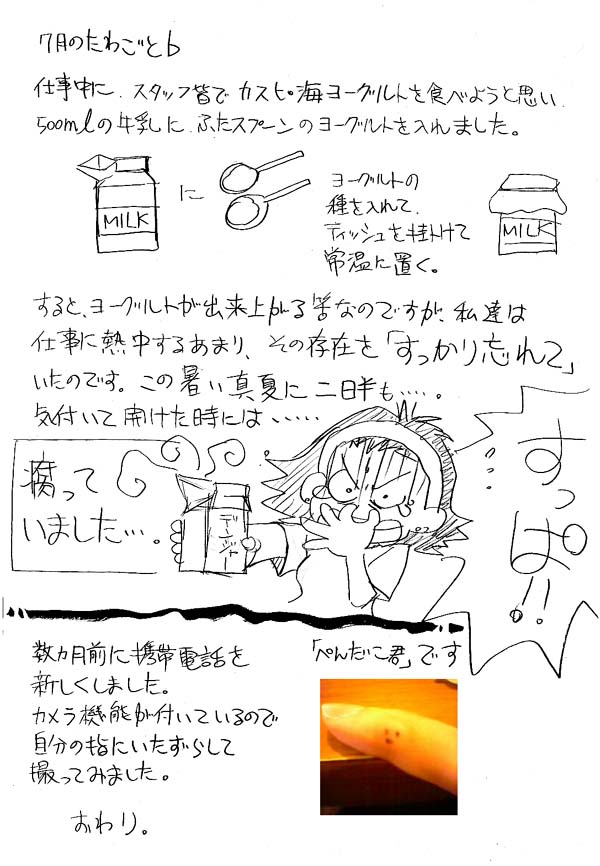 7月のたわごとb
仕事中に、スタッフ皆でカスピ海ヨーグルトを食べようと思い
500mlの牛乳に ふたスプーンのヨーグルトを入れました。
MILK
に
ヨーグルトの
種を入れて、
ティッシュを掛けて
常温に置く。
MILK
すると、ヨーグルトが出来上がる筈なのですが、私達は
仕事に熱中するあまり、その存在を「すっかり忘れて」
いたのです。この暑い真夏に二日半も‥‥。
気付いて開けた時には‥‥‥
腐って
いました…。
デンジャー
すっぱ!!
数ヵ月前に携帯電話を
新しくしました。
カメラ機能が付いているので
自分の指にいたずらして
撮ってみました。
おわり。
「ぺんだこ君」です